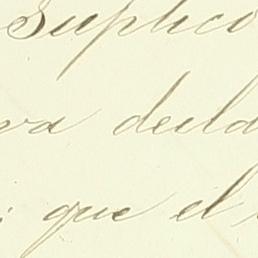 Suplico
va decla
que el